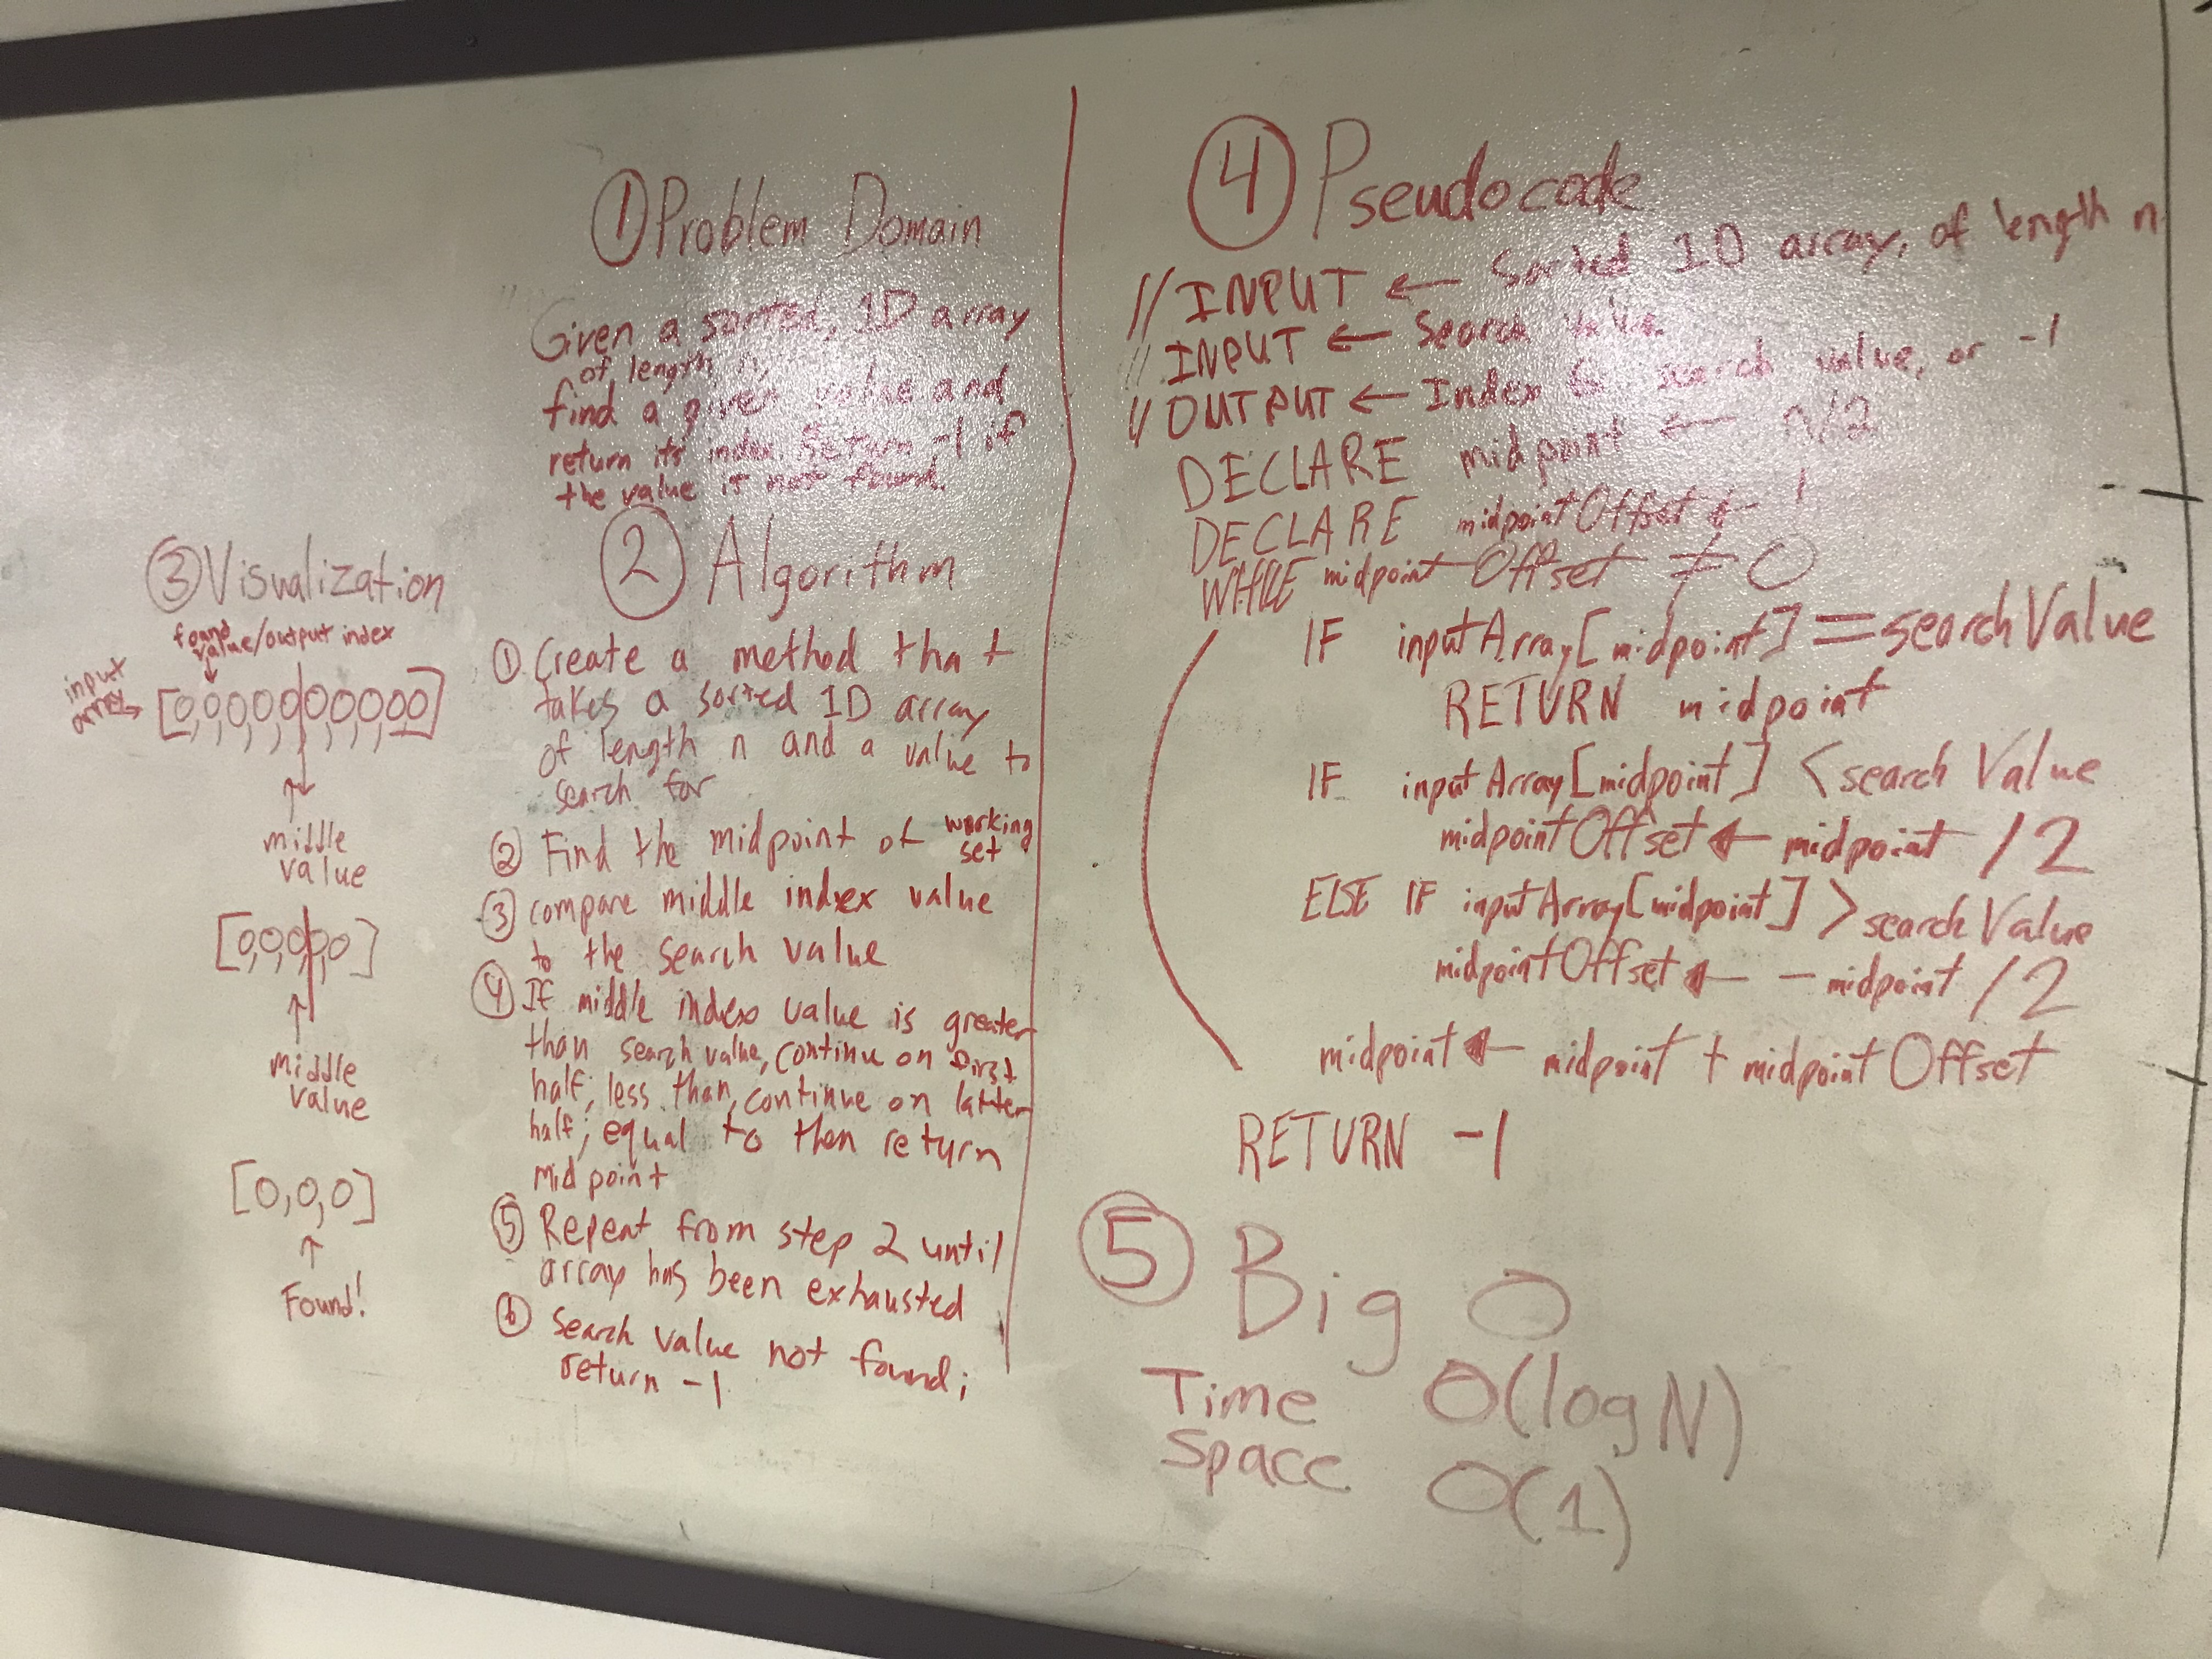 ① Problem Domain
Given a sorted, 1D array
of length n,
find a given value and
return its index. Return -1 if
the value is not found.
② Algorithm
① Create a method that
takes a sorted 1D array
of length n and a value to
search for
② Find the midpoint of working
set
③ compare middle index value
to the search value
④ If middle index value is greater
than search value, continue on first
half; less than, continue on latter
half; equal to then return
midpoint
⑤ Repeat from step 2 until
array has been exhausted
⑥ Search value not found;
return -1
③ Visualization
found
value/output index
input
array →
[0,0,0,0,0,0,0,0,0,0]
middle
value
[0,0,0,0,0]
middle
value
[0,0,0]
Found!
④ Pseudocode
// INPUT ← Sorted 1D array, of length n
// INPUT ← Search value
// OUTPUT ← Index search value, or -1
DECLARE midpoint ← n/2
DECLARE midpointOffset ← 1
WHILE midpointOffset ≠ 0
IF inputArray[midpoint] = searchValue
RETURN midpoint
IF inputArray[midpoint] < searchValue
midpointOffset ← midpoint / 2
ELSE IF inputArray[midpoint] > searchValue
midpointOffset ← - midpoint / 2
midpoint ← midpoint + midpointOffset
RETURN -1
⑤ Big O
Time O(logN)
Space O(1)